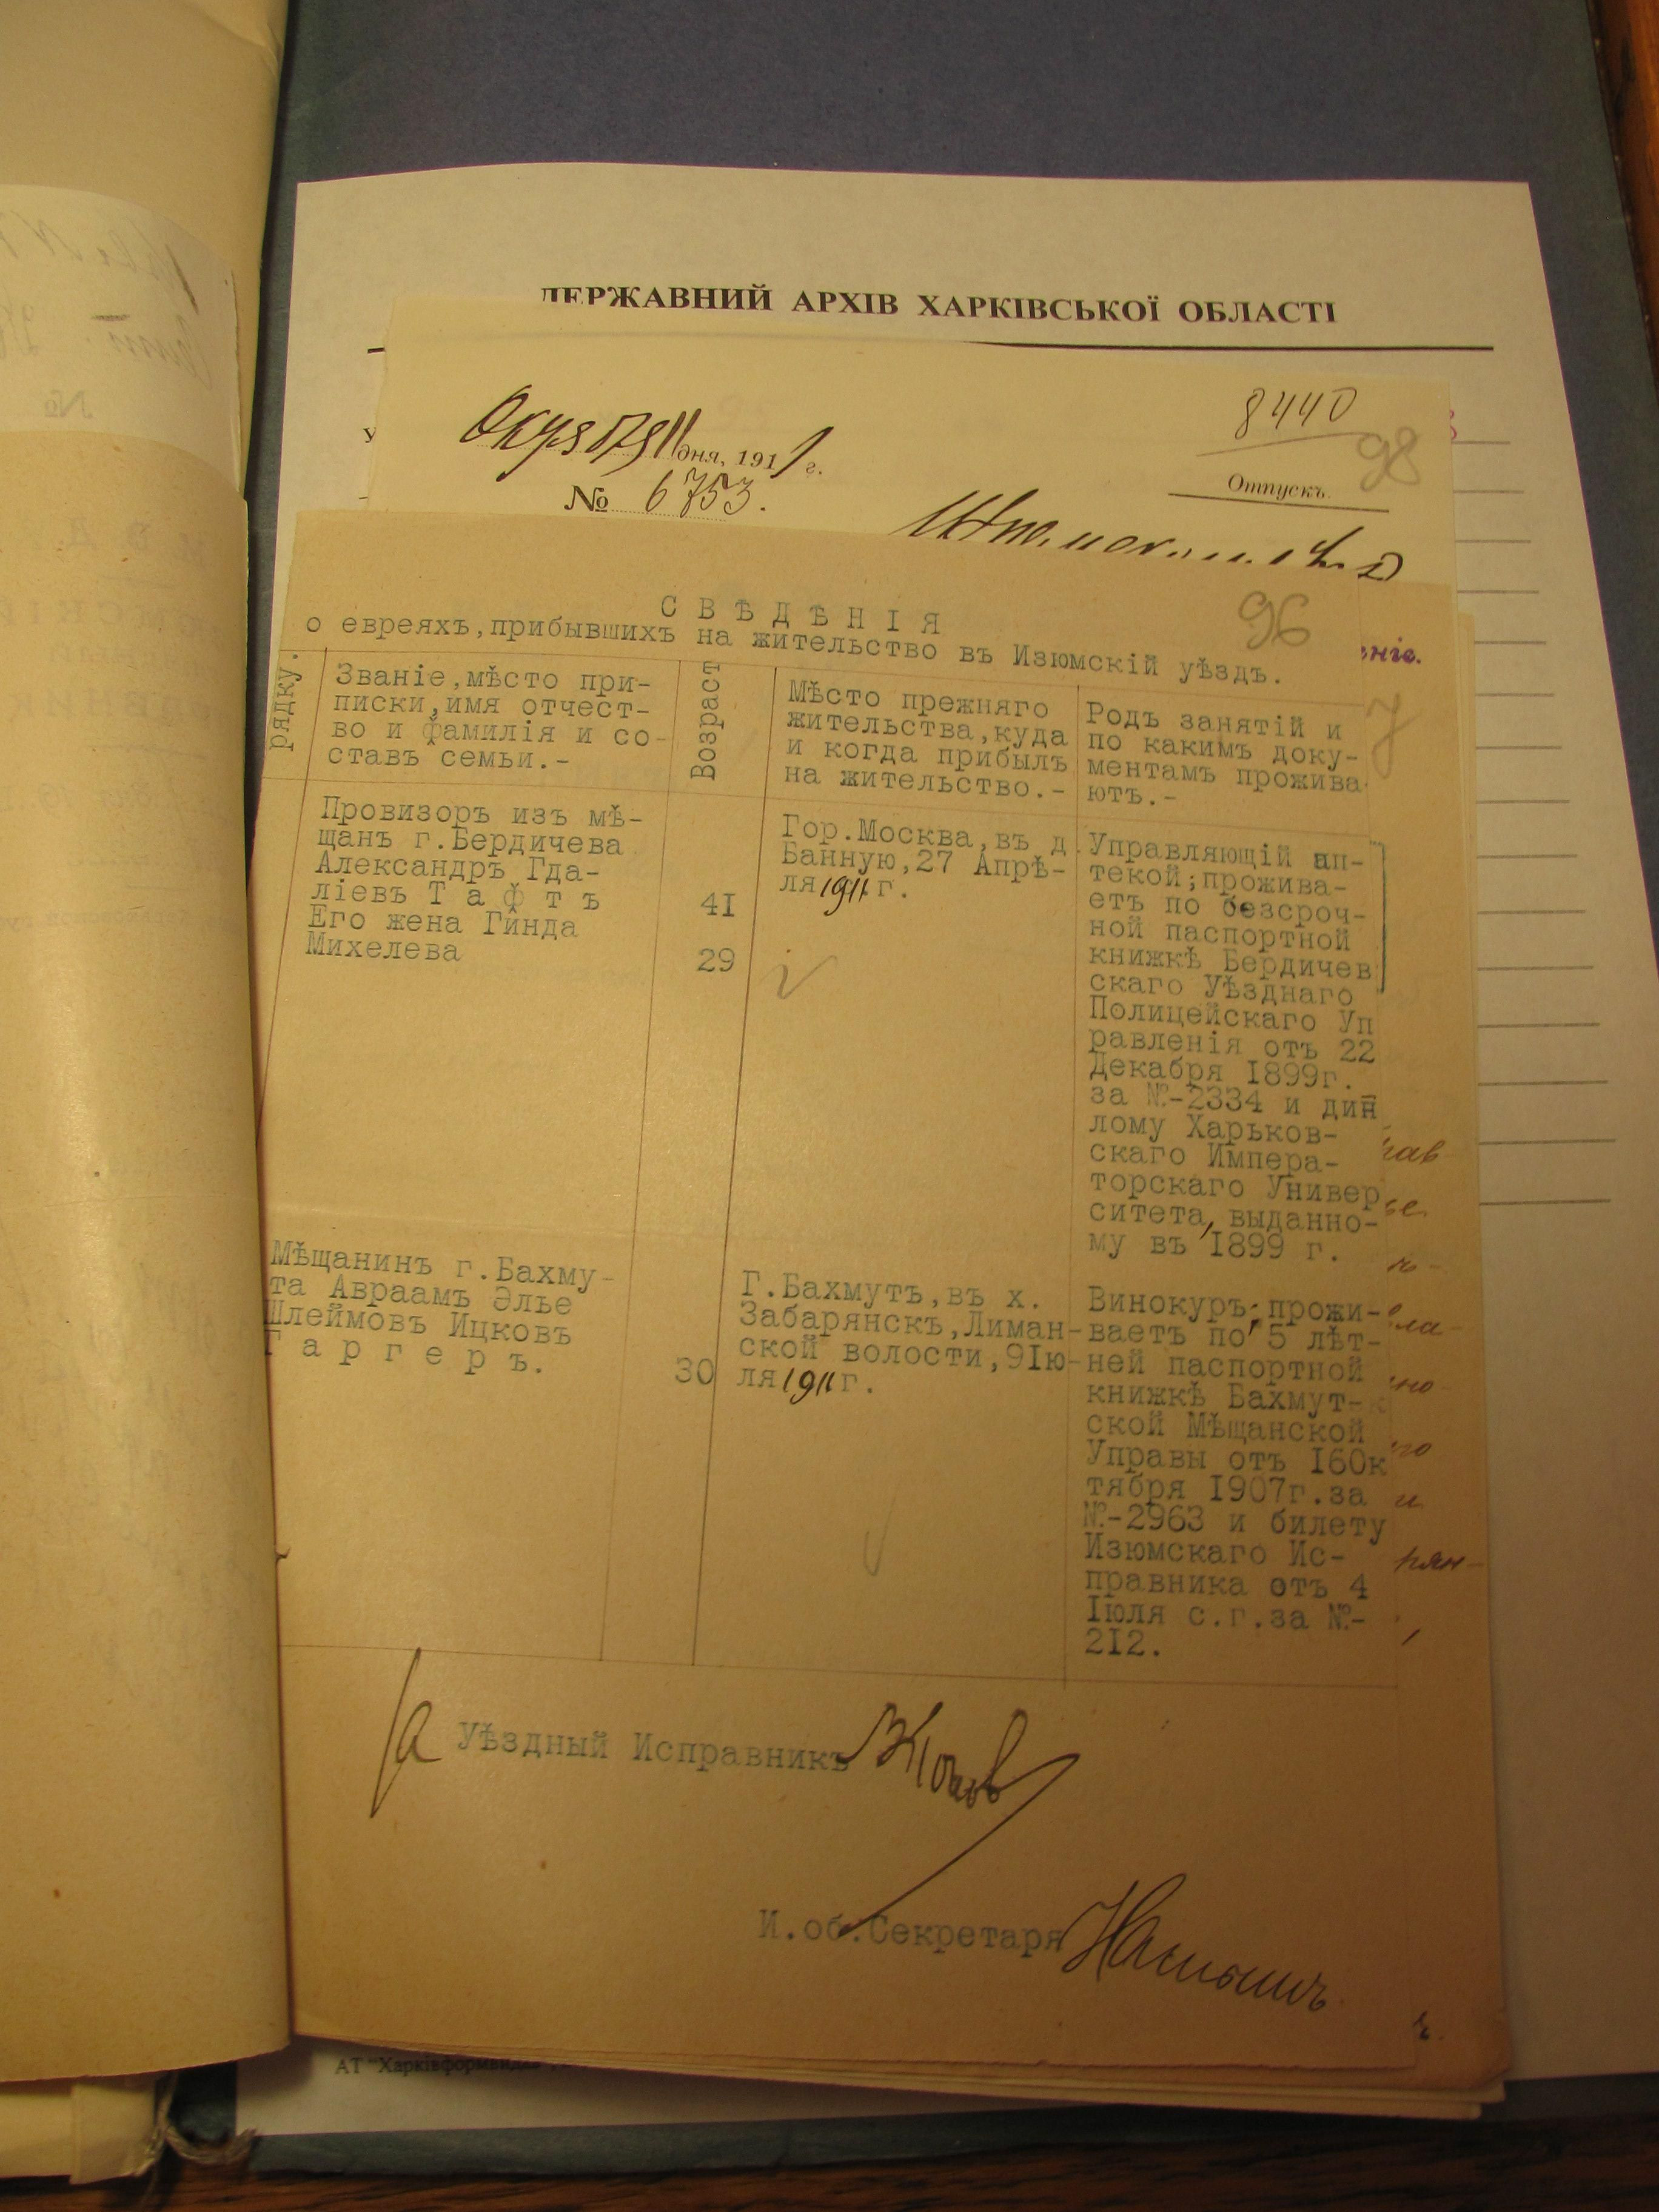 ДЕРЖАВНИЙ АРХІВ ХАРКІВСЬКОЇ ОБЛАСТІ
8440
98
дня, 1911 г.
№ 6753.
Отпускъ.
СВѢДѢНІЯ
96
о евреяхъ,прибывшихъ на жительство въ Изюмскій уѣздъ.
ніе.
рядку.
Званіе,мѣсто при-
писки,имя отчест-
во и фамилія и со-
ставъ семьи.-
Возрастъ
Мѣсто прежняго
жительства,куда
и когда прибылъ
на жительство.-
Родъ занятій и
по какимъ доку-
ментамъ прожива
ютъ.-
7
Провизоръ изъ мѣ-
щанъ г.Бердичева
Александръ Гда-
ліевъ Т а ф т ъ
Его жена Гинда
Михелева
41
29
Гор.Москва,въ д
Банную,27 Апрѣ-
ля 1911 г.
Управляющій ап-
текой;прожива-
етъ по безсроч-
ной паспортной
книжкѣ Бердичев
скаго Уѣзднаго
Полицейскаго Уп
равленія отъ 22
Декабря I899г.
за №-2334 и дип
лому Харьков-
скаго Импера-
торскаго Универ
ситета, выданно-
му въ I899 г.
Мѣщанинъ г.Бахму-
та Авраамъ Элье
Шлеймовъ Ицковъ
Г а р г е р ъ.
30
Г.Бахмутъ,въ х.
Забарянскъ,Лиман-
ской волости,9Iю-
ля 1911 г.
Винокуръ;прожи-
ваетъ по 5 лѣт-
ней паспортной
книжкѣ Бахмут-
ской Мѣщанской
Управы отъ I6Ок
тября I907г.за
№-2963 и билету
Изюмскаго Ис-
правника отъ 4
Iюля с.г.за №-
2I2.
Уѣздный Исправникъ
И.об.Секретаря
АТ "Харківформвидав